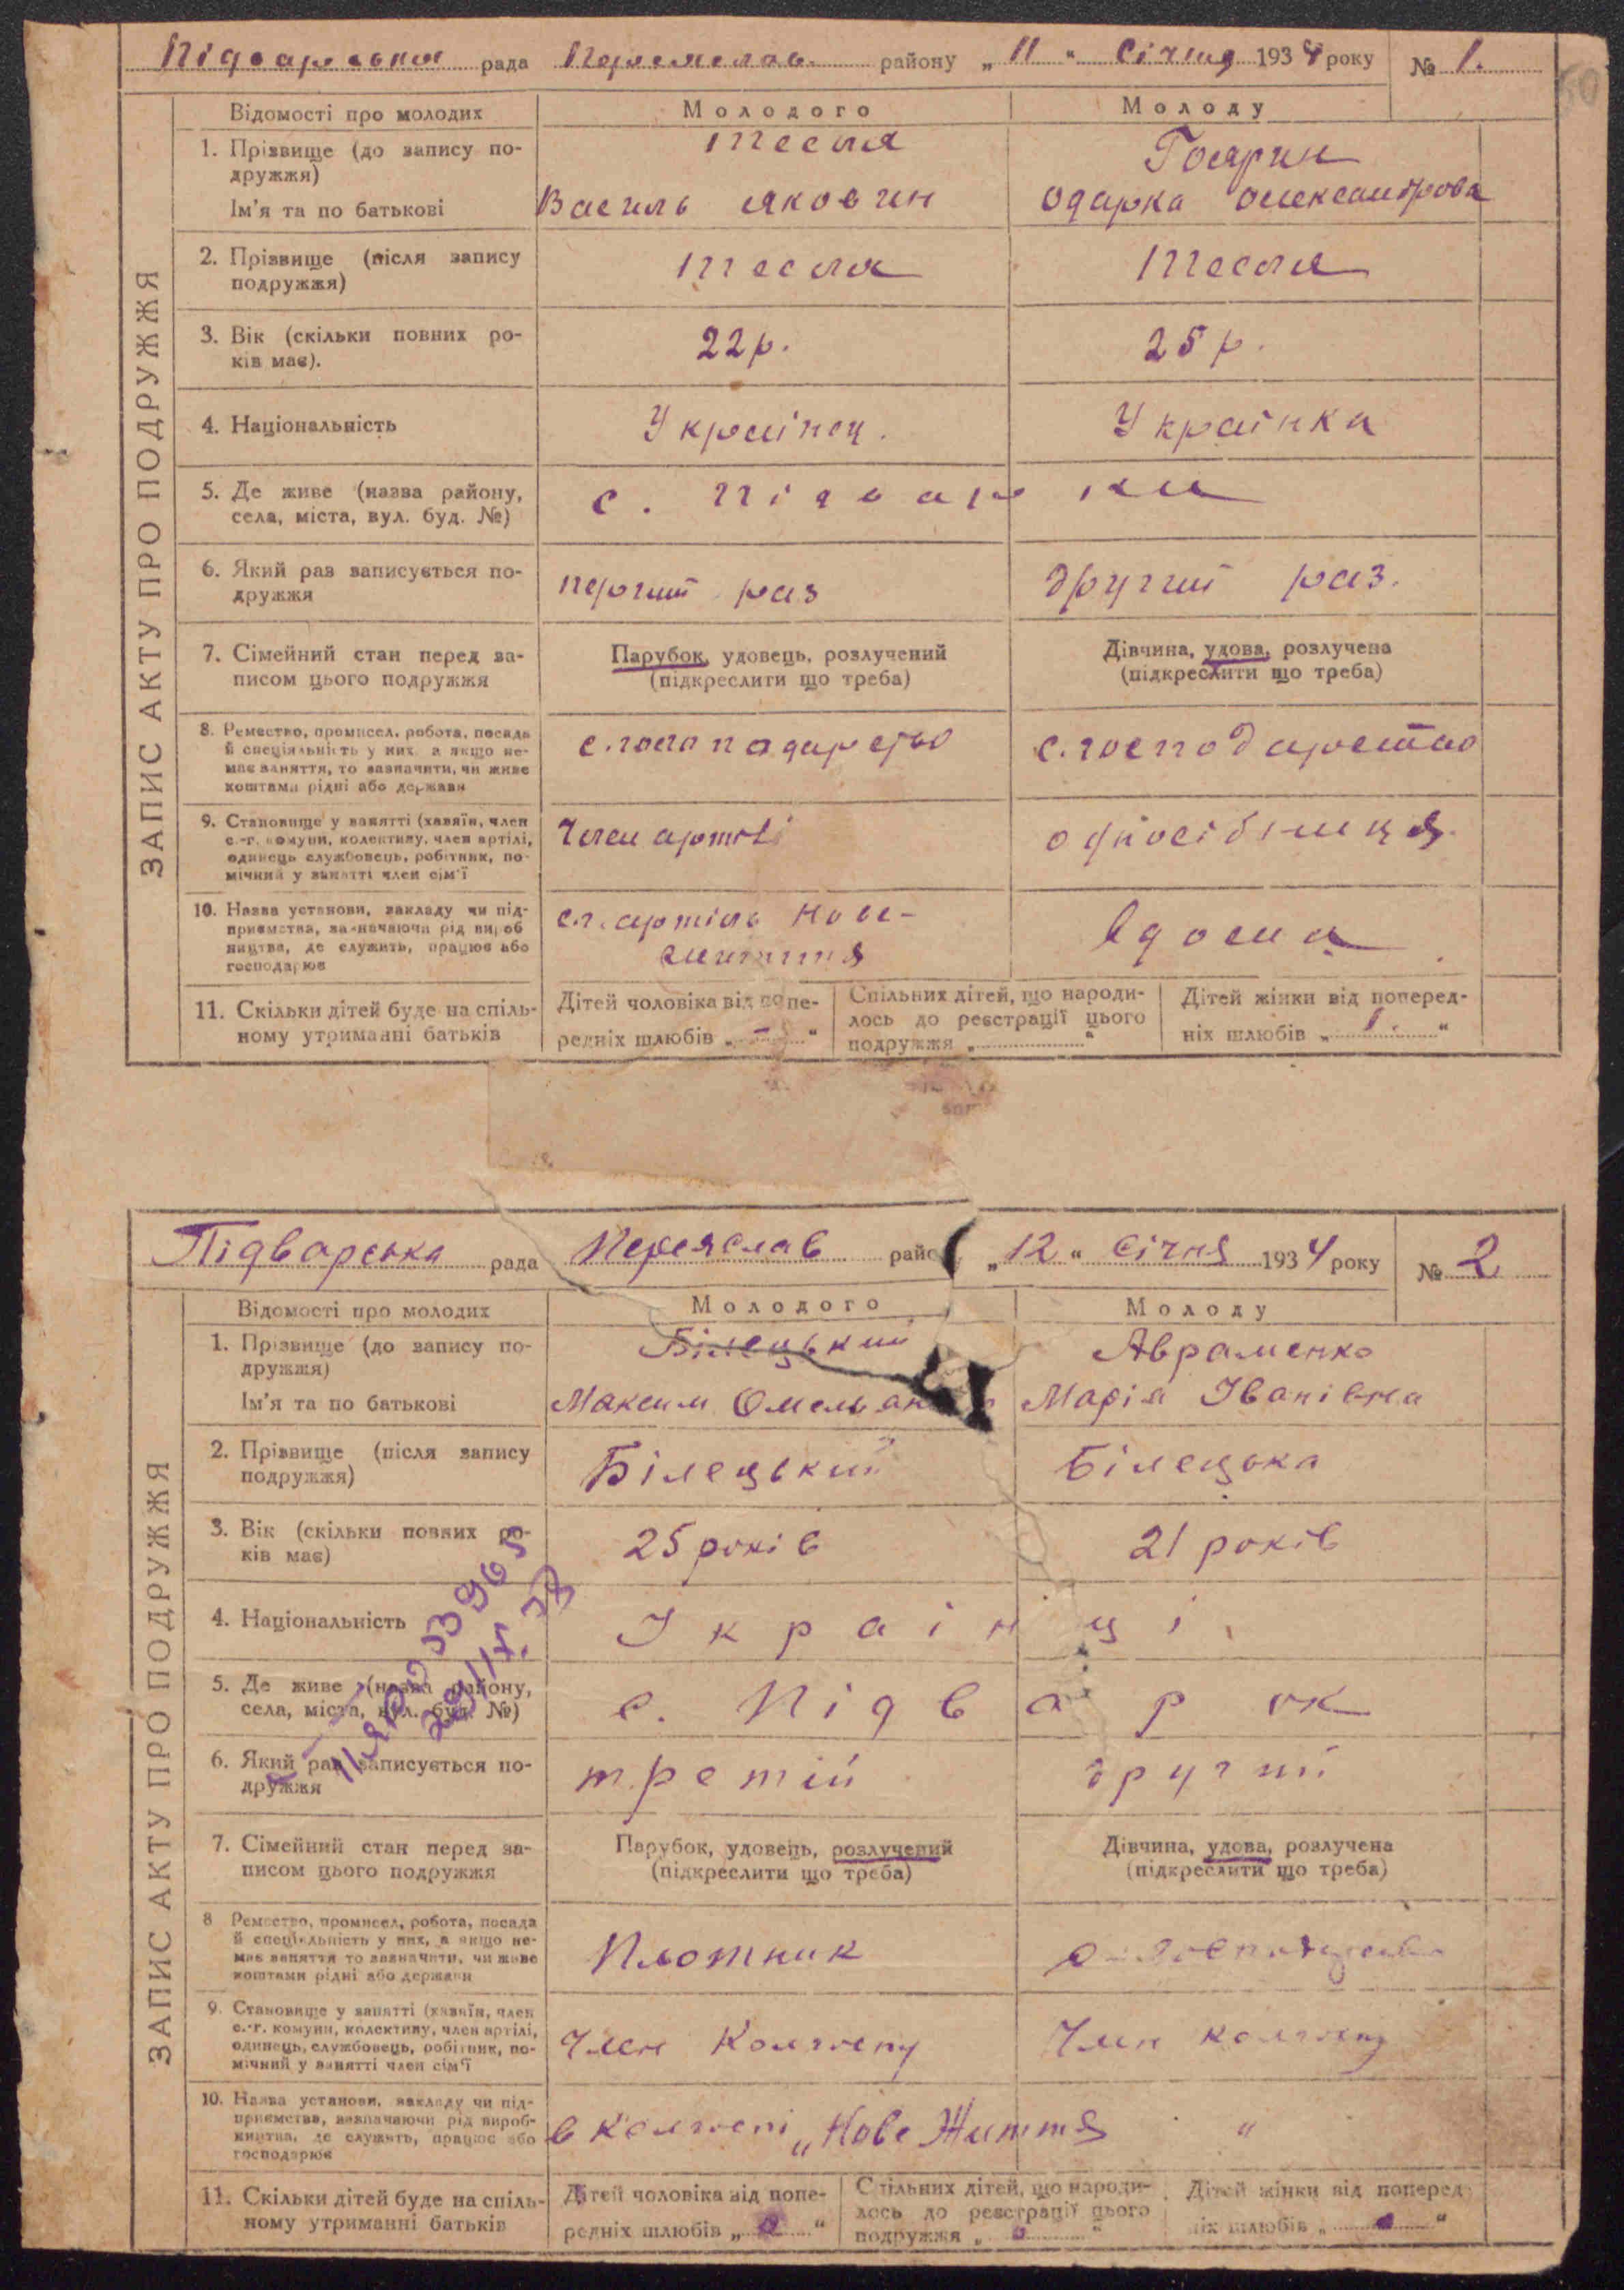 Підварська рада Переяслав. району „ 11 “ Січня 1934 року № 1.
ЗАПИС АКТУ ПРО ПОДРУЖЖЯ
Відомості про молодих Молодого Молоду
1. Прізвище (до запису по-
дружжя) Тесля
Ім'я та по батькові Василь Яковин Одарка Олександрова
2. Прізвище (після запису
подружжя) Тесля Тесля
3. Вік (скільки повних ро-
ків має). 22 р. 25 р.
4. Національність Украінец. Украінка
5. Де живе (назва району,
села, міста, вул. буд. №) с. Підварки
6. Який раз записується по-
дружжя перший раз другий раз.
7. Сімейний стан перед за-
писом цього подружжя
Парубок, удовець, розлучений
(підкреслити що треба)
Дівчина, удова, розлучена
(підкреслити що треба)
8. Ремество, промисел, робота, посада
й спеціяльність у них, а якщо не-
має заняття, то зазначити, чи живе
коштами рідні або держави
с. господарство
9. Становище у занятті (хазяїн, член
с.-г. комуни, колективу, член артілі,
одинець службовець, робітник, по-
мічний у занятті член сім'ї
Член артілі одноосібниця
10. Назва установи, закладу чи під-
приємства, зазначаючи рід вироб
ництва, де служить, працює або
господарює
с.г. артіль Нове-
життя
вдома
11. Скільки дітей буде на спіль-
ному утриманні батьків
Дітей чоловіка від попе-
редніх шлюбів „ - “
Спільних дітей, що народи-
лось до реєстрації цього
подружжя „ “
Дітей жінки від поперед-
ніх шлюбів „ 1. “
Підварська рада Переяслав райо „ 12 “ Січня 1934 року № 2
ЗАПИС АКТУ ПРО ПОДРУЖЖЯ
Відомості про молодих Молодого Молоду
1. Прізвище (до запису по-
дружжя) Білецький Авраменко
Ім'я та по батькові Максим Омельян Марія Іванівна
2. Прізвище (після запису
подружжя) Білецький Білецька
3. Вік (скільки повних ро-
ків має) 25 років 21 років
4. Національність Украінці
5. Де живе (назва району,
села, міста, вул. буд. №) с. Підварок
6. Який раз записується по-
дружжя третій другий
7. Сімейний стан перед за-
писом цього подружжя
Парубок, удовець, розлучений
(підкреслити що треба)
Дівчина, удова, розлучена
(підкреслити що треба)
8 Ремество, промисел, робота, посада
й спеціяльність у них, а якщо не-
має заняття то зазначити, чи живе
коштами рідні або держави
Плотник
9. Становище у занятті (хазяїн, член
с.-г. комуни, колективу, член артілі,
одинець, службовець, робітник, по-
мічний у занятті член сім'ї
Член Колгоспу Член колгоспу
10. Назва установи, закладу чи під-
приємства, зазначаючи рід вироб-
ництва, де служить, працює або
господарює
в Колгоспі „Нове Життя “
11. Скільки дітей буде на спіль-
ному утриманні батьків
Дітей чоловіка від попе-
редніх шлюбів „ 0 “
Спільних дітей, що народи-
лось до реєстрації цього
подружжя „ 0 “
Дітей жінки від поперед-
ніх шлюбів „ 0 “